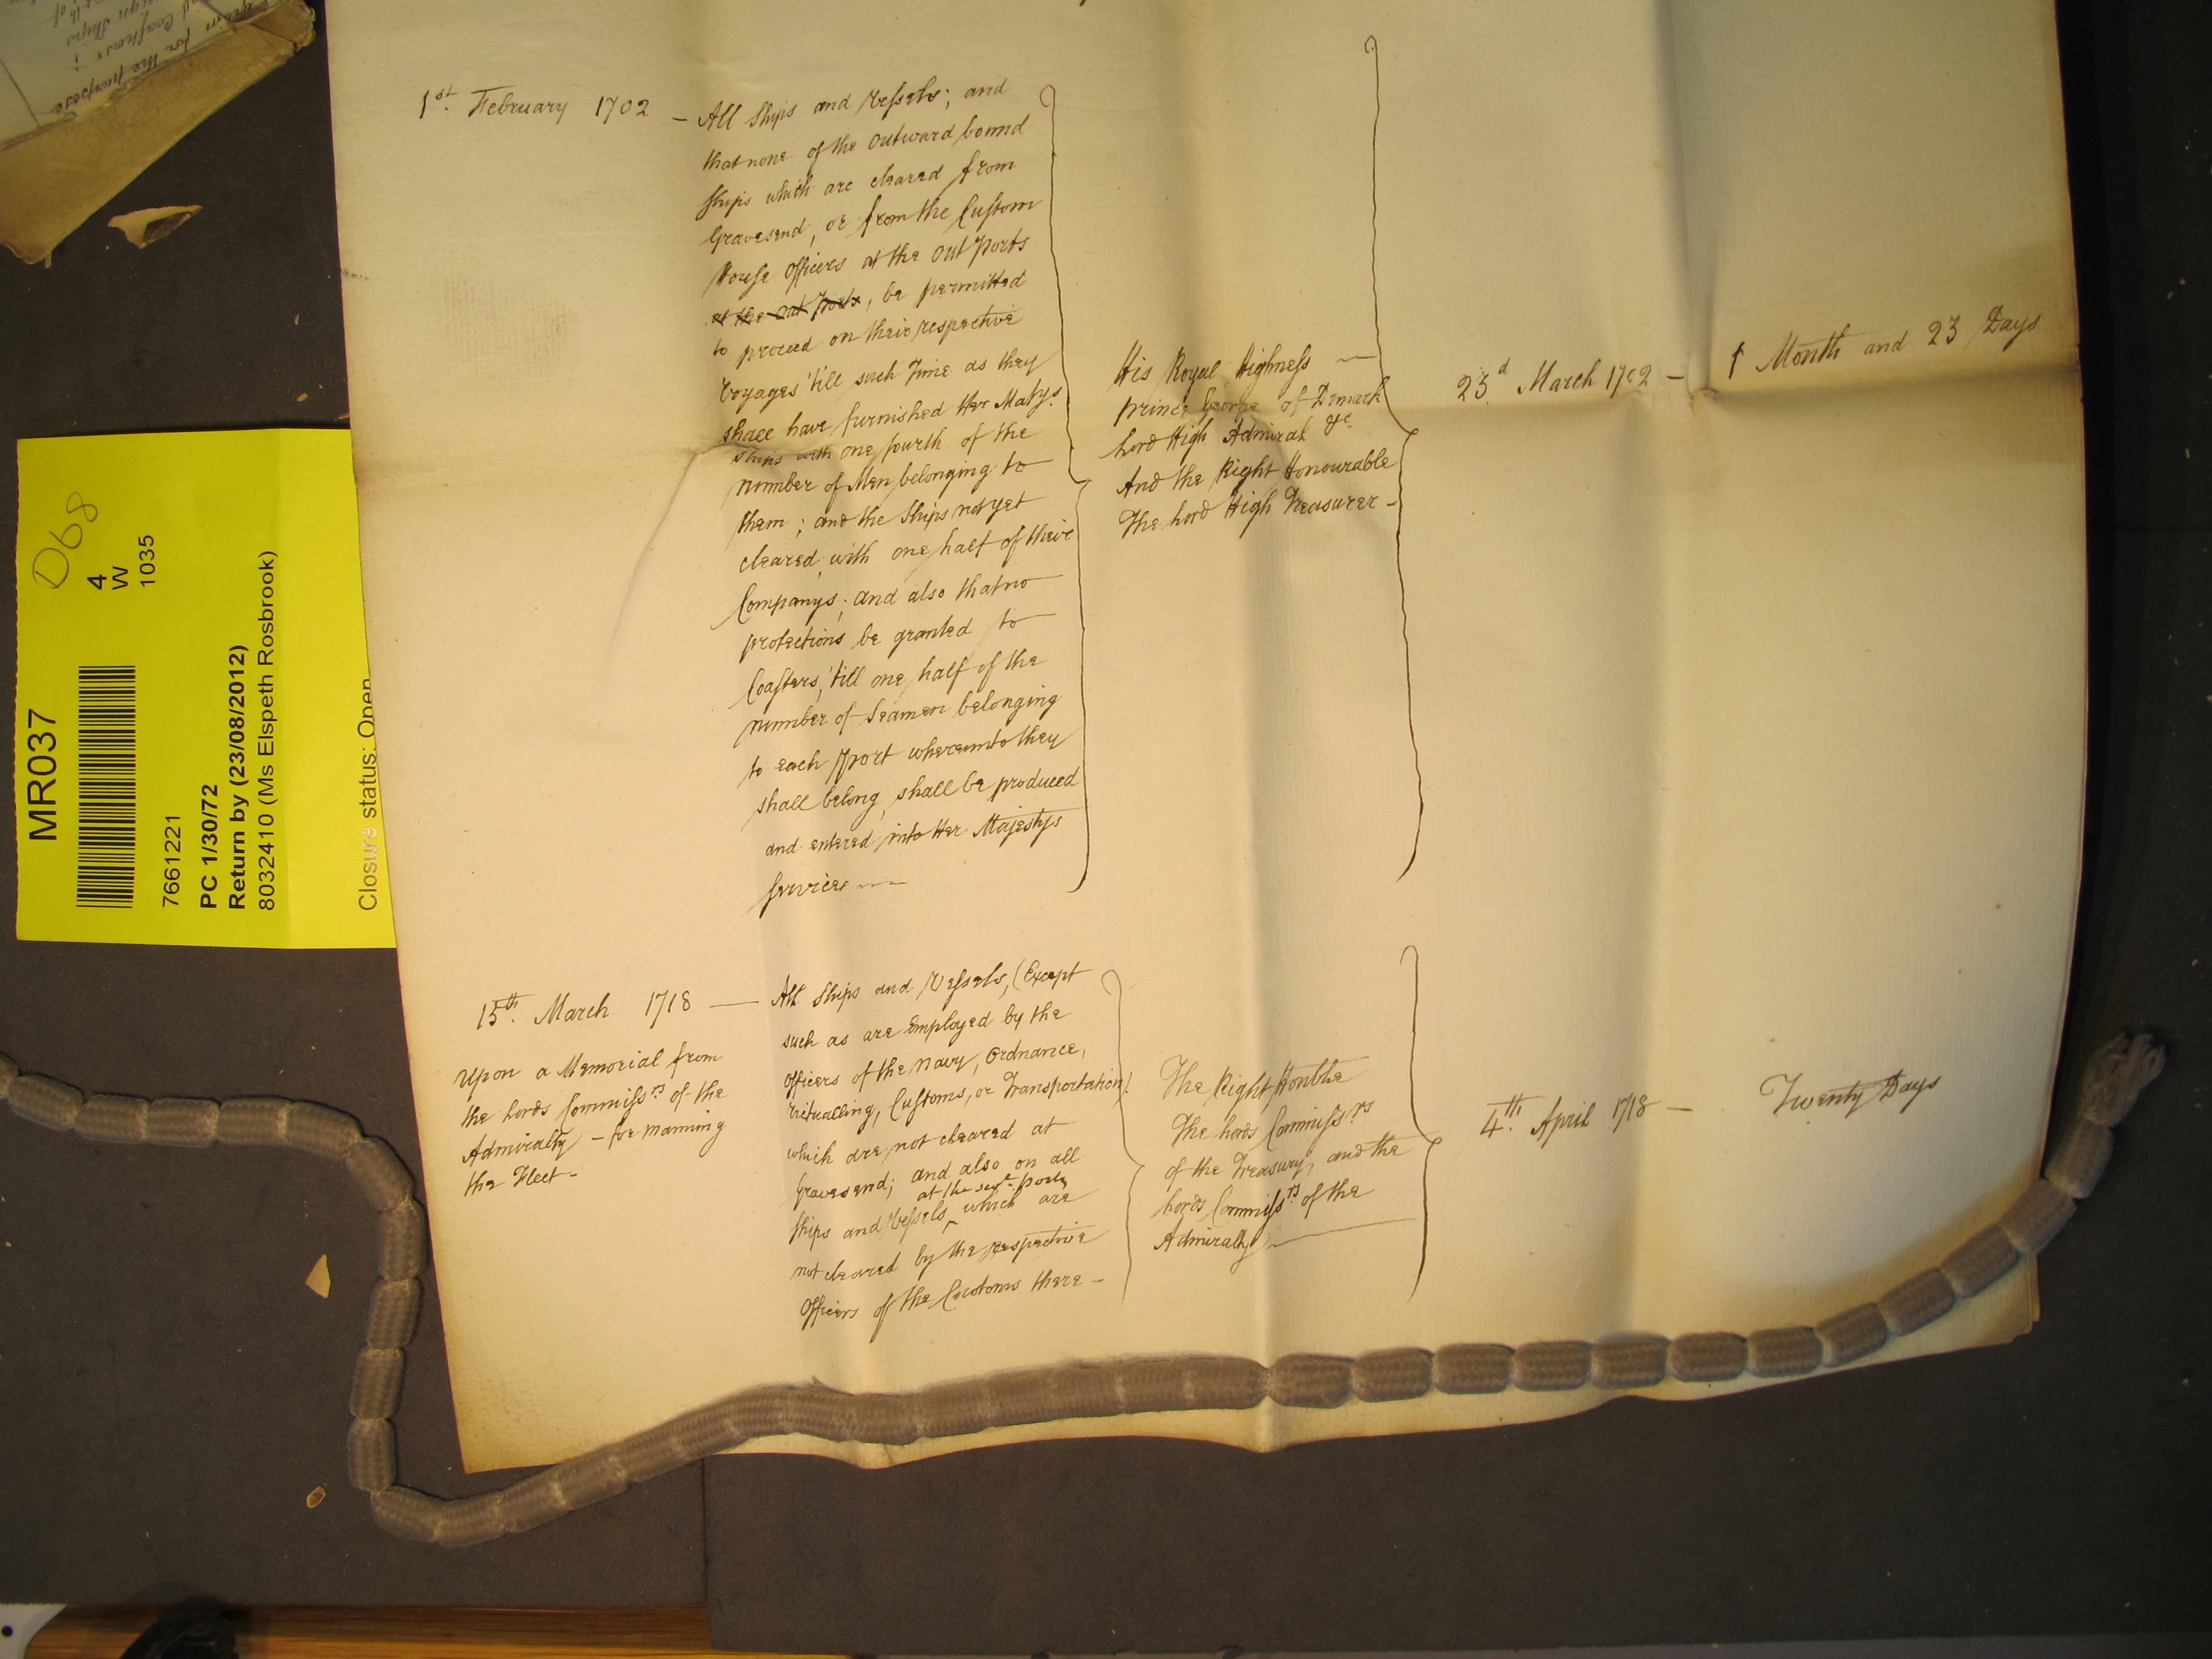 1st. February 1702 –
All Ships and Vessels; and
that none of the Outward bound
Ships which are cleared from
Gravesend, or from the Custom
House Officers at the Out Ports
at the out Ports, be permitted
to proceed on their respective
Voyages 'till such Time as they
shall have furnished Her Matys.
Ships with one fourth of the
Number of Men belonging to
them; and the Ships not yet
cleared, with one half of their
Companys; and also that no
protections be granted to
Coasters, 'till one half of the
number of Seamen belonging
to each Port whereunto they
shall belong, shall be produced
and entered into Her Majestys
Service
His Royal Highness
prince George of Dnmark
Lord High Admiral &c
And the Right Honourable
The Lord High Treasurer –
23d March 1702 –
1 Month and 23 Days
15th. March 1718 —
Upon a Memorial from
the Lords Commissrs of the
Admiralty – for Manning
the Fleet –
All Ships and Vessels, (Except
such as are Employed by the
Officers of the Navy, Ordnance,
Victualling, Customs, or Transportation)
which are not cleared at
Gravesend; and also on all
at the sevl. ports
Ships and Vessels ‸ which are
not cleared by the respective
Officers of the Customs there –
The Right Honble
The Lords Commissrs
of the Treasury, and the
Lords Commissrs of the
Admiralty
4th. April 1718 –
Twenty Days
D68
MR037
4
W
1035
7661221
PC 1/30/72
Return by (23/08/2012)
8032410 (Ms Elspeth Rosbrook)
Closure status: Open
for the purpose
Ships